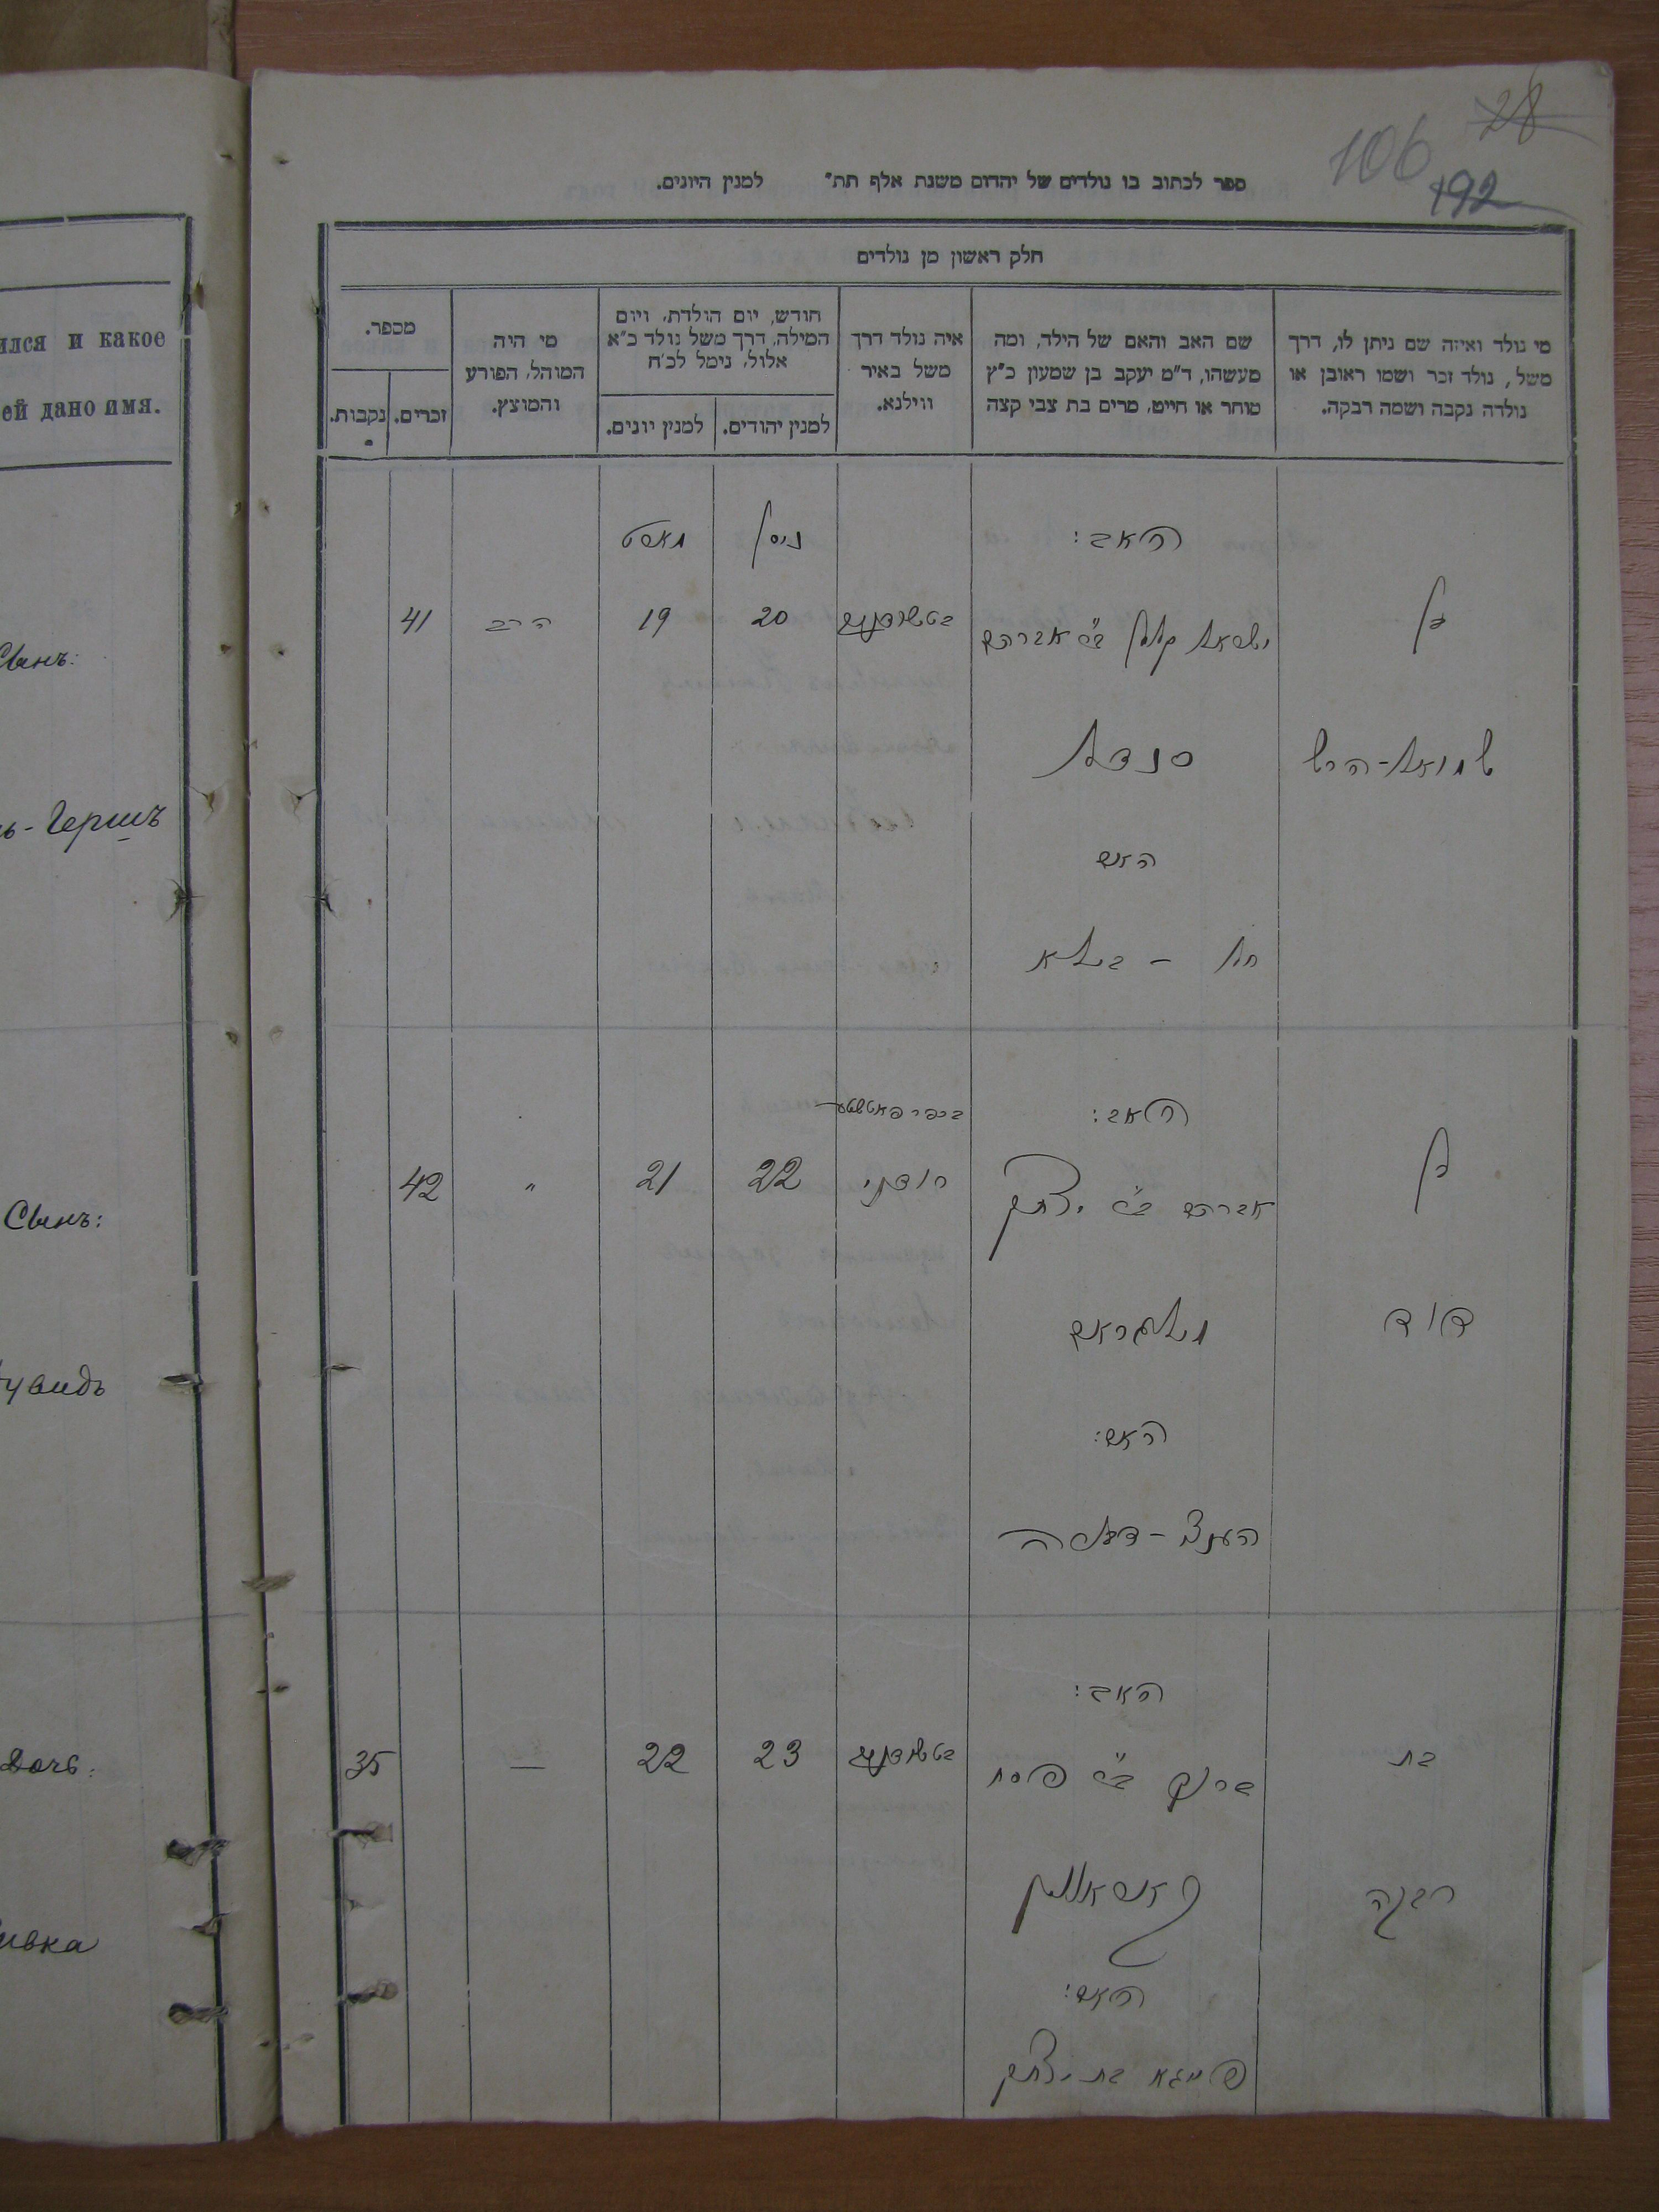 28
106
192
ספר לכתוב בו נולדים של יהדום משנת אלף תת״ למנין היונים.
חלק ראשון מן נולדים
מי נולד ואיזה שם ניתן לו, דרך
משל, נולד זכר ושמו ראובן או
נולדה נקבה ושמה רבקה.
שם האב והאם של הילד, ומה
מעשהו, ד״מ יעקב בן שמעון כ״ץ
סוחר או חייט, מרים בת צבי קצה
איה נולד דרך
משל באיר
ווילנא.
חודש, יום הולדת, ויום
המילה, דרך משל נולד כ״א
אלול, נימל לכ״ח
למנין יהודים.
למנין יונים.
מי היה
המוהל, הפורע
והמוצץ.
מספר.
זכרים.
נקבות.
האב:
ניסן
מארט
בן
ישראל קלמן ב״ר אברהם
20
19
הרב
41
שמואל-הרש
סנדל
האם
חי׳ - ביילא
האב:
בן
אברהם ב״ר יצחק
רודני
22
21
״
42
דוד
מילגראם
האם:
הענצי-דבורה
האב:
בת
ברוך ב״ר פסח
23
22
—
35
רבקה
האם:
פייגא בת יצחק
ился и какое
ей дано имя.
Сынъ:
ь-Гершъ
Сынъ:
увидъ
Дочь:
ивка